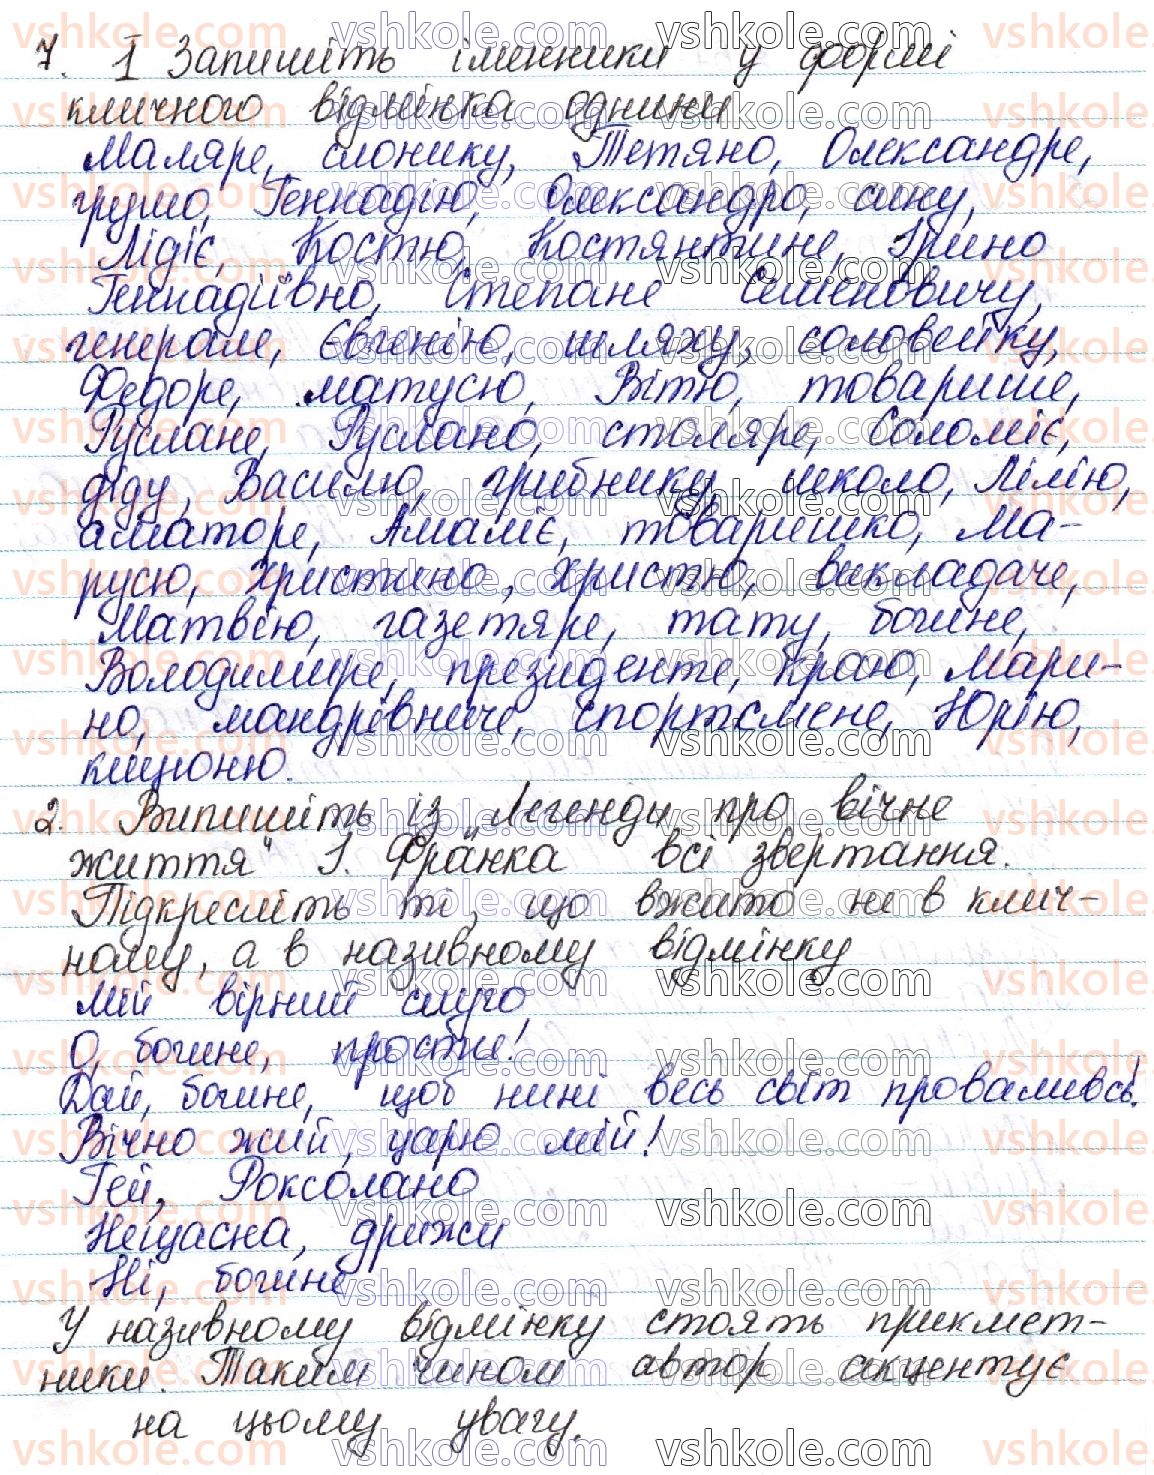 7. I Запишіть іменники у формі
кличного відмінка однини
Маляре, слонику, Тетяно, Олександре,
грушо, Геннадію, Олександро, сину,
Лідіє, Костю, Костянтине, Ірино
Геннадіївно, Степане Семеновичу,
генерале, Євгенію, шляху, соловейку,
Федоре, матусю, Вітю, товарише,
Руслане, Руслано, столяре, Соломіє,
діду, Василю, грибнику, школо, Лілію,
аматоре, Амаліє, товаришко, Ма-
русю, Христино, Христю, викладаче,
Матвію, газетяре, тату, богине,
Володимире, президенте, краю, Мари-
но, мандрівниче, спортсмене, Юрію,
кицюню.
2. Випишіть із „Легенди про вічне
життя" І. Франка всі звертання.
Підкресліть ті, що вжито не в клич-
ному, а в називному відмінку
Мій вірний слуго,
О, богине, прости!
Дай, богине, щоб нині весь світ проваливсь!
Вічно жий, царю мій!
Гей, Роксолано
Нещасна, дрижи
Ні, богине
У називному відмінку стоять прикмет-
ники. Таким чином автор акцентує
на цьому увагу.